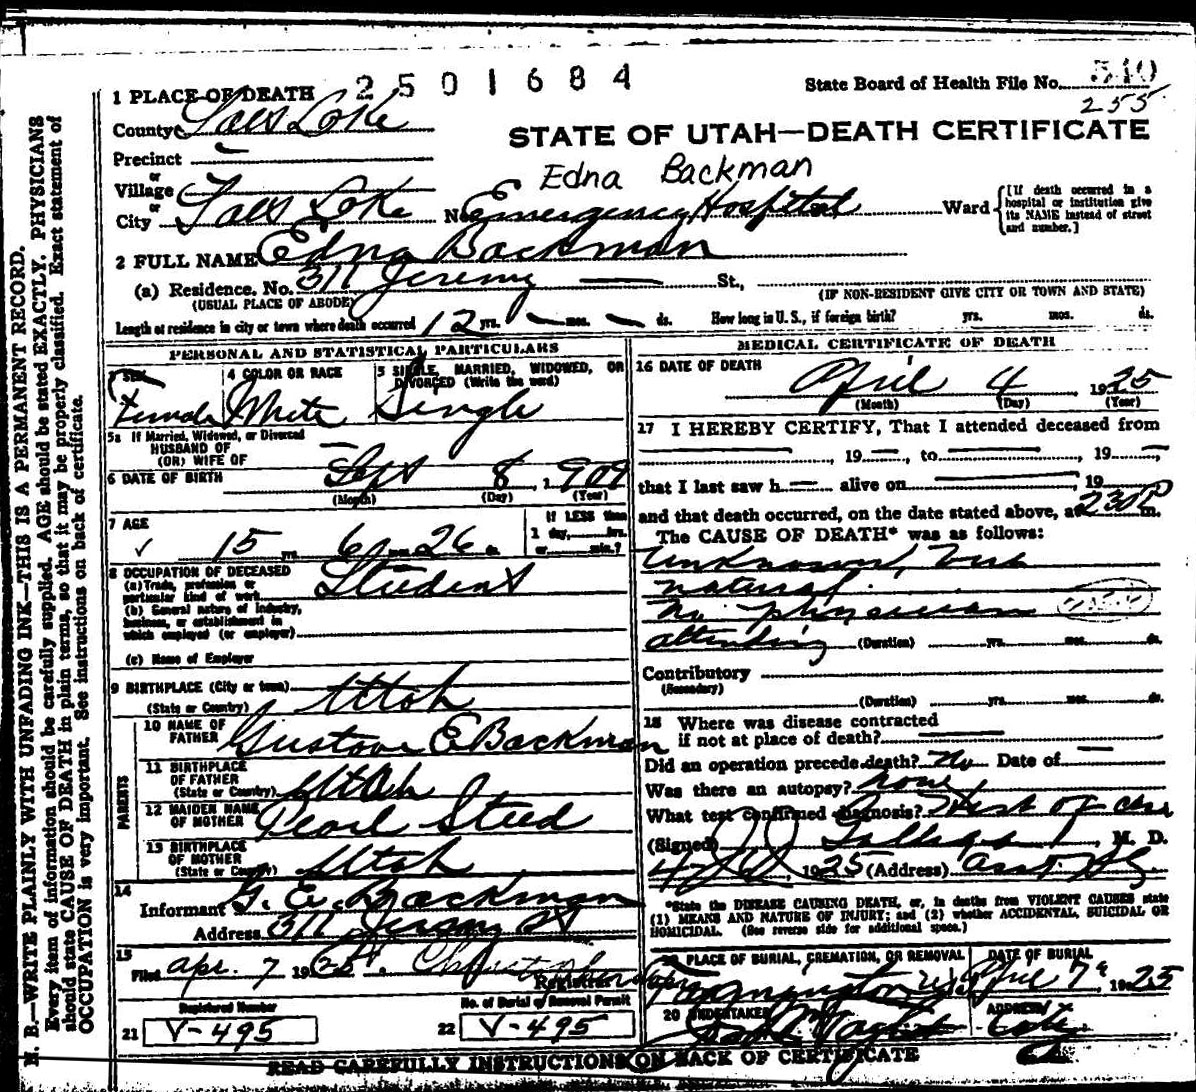 2501684
State Board of Health File No. 510
255
1 PLACE OF DEATH
County Salt Lake
STATE OF UTAH—DEATH CERTIFICATE
Precinct
or
Edna Backman
Village
or
City Salt Lake No. Emergency Hospital Ward
[If death occurred in a
hospital or institution give
its NAME instead of street
and number.]
2 FULL NAME Edna Backman
(a) Residence, No. 311 Jeremy St.,
(USUAL PLACE OF ABODE) (IF NON-RESIDENT GIVE CITY OR TOWN AND STATE)
Length of residence in city or town where death occurred 12 yrs. — mos. — ds. How long in U. S., if foreign birth? yrs. mos. ds.
PERSONAL AND STATISTICAL PARTICULARS
SEX 4 COLOR OR RACE 5 SINGLE, MARRIED, WIDOWED, OR
DIVORCED (Write the word)
Female White Single
5a If Married, Widowed, or Divorced
HUSBAND OF
(OR) WIFE OF
6 DATE OF BIRTH Sept 8, 1909
(Month) (Day) (Year)
7 AGE If LESS than
15 yrs. 6 mos. 26 ds. 1 day, hrs.
or min.?
8 OCCUPATION OF DECEASED
(a) Trade, profession or
particular kind of work Student
(b) General nature of industry,
business, or establishment in
which employed (or employer)
(c) Name of Employer
9 BIRTHPLACE (City or town)
(State or Country) Utah
PARENTS
10 NAME OF
FATHER Gustave E Backman
11 BIRTHPLACE
OF FATHER
(State or Country) Utah
12 MAIDEN NAME
OF MOTHER Pearl Steed
13 BIRTHPLACE
OF MOTHER
(State or Country) Utah
14
Informant G. E. Backman
Address 311 Jeremy St
15
Filed Apr. 7 1925
Registrar
Registered Number No. of Burial or Removal Permit
21 V-495 22 V-495
MEDICAL CERTIFICATE OF DEATH
16 DATE OF DEATH
April 4 1925
(Month) (Day) (Year)
17 I HEREBY CERTIFY, That I attended deceased from
—, 19—, to —, 19—,
that I last saw h— alive on —, 19
and that death occurred, on the date stated above, at 230 P m.
The CAUSE OF DEATH* was as follows:
Unknown, but
natural.
No physician
attending (Duration) yrs. mos. ds.
Contributory
(Secondary)
(Duration) yrs. mos. ds.
18 Where was disease contracted
if not at place of death?
Did an operation precede death? No Date of —
Was there an autopsy? none
What test confirmed diagnosis? Hist of case
(Signed) M. D.
1925 (Address)
*State the DISEASE CAUSING DEATH, or, in deaths from VIOLENT CAUSES state
(1) MEANS AND NATURE OF INJURY; and (2) whether ACCIDENTAL, SUICIDAL OR
HOMICIDAL. (See reverse side for additional space.)
19 PLACE OF BURIAL, CREMATION, OR REMOVAL DATE OF BURIAL
Farmington April 7 1925
20 UNDERTAKER ADDRESS
City
READ CAREFULLY INSTRUCTIONS ON BACK OF CERTIFICATE
N. B.—WRITE PLAINLY WITH UNFADING INK—THIS IS A PERMANENT RECORD.
Every item of information should be carefully supplied. AGE should be stated EXACTLY. PHYSICIANS
should state CAUSE OF DEATH in plain terms, so that it may be properly classified. Exact statement of
OCCUPATION is very important. See instructions on back of certificate.